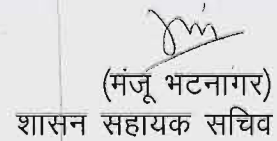 (मंजू भटनागर)
शासन सहायक सचिव